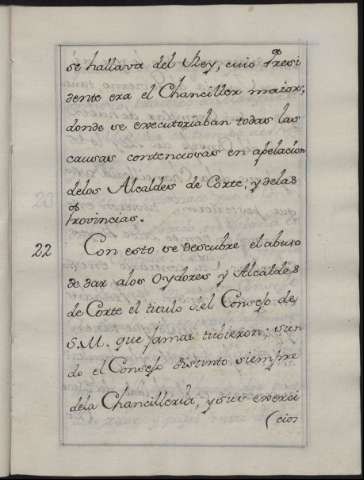 se hallava del Rey, cuio Presi
dente era el Chanciller maior;
donde se executoriaban todas las
causas contenciosas en apelacion
delos Alcaldes de Corte, y delas
Provincias.
22 Con esto se descubre el abuso
de dar alos Oydores y Alcaldes
de Corte el titulo del Consejo de
S.M. que jamas tubieron; sien
do el Consejo distinto siempre
dela Chancilleria, y sus exerci
(cios